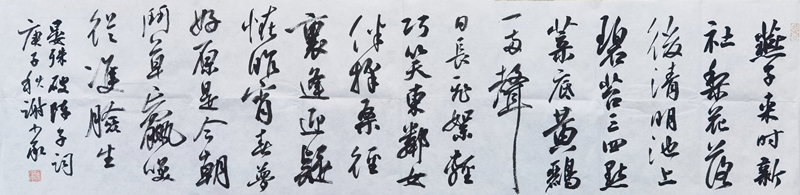 燕子来时新
社梨花落
後清明池上
碧苔三四點
葉底黄鸝
一两聲
日長飛絮輕
巧笑東鄰女
伴採桑徑
裏逢迎疑
怪昨宵春夢
好原是今朝
鬥草贏笑
從雙臉生
晏殊破陣子詞
庚子秋謝少